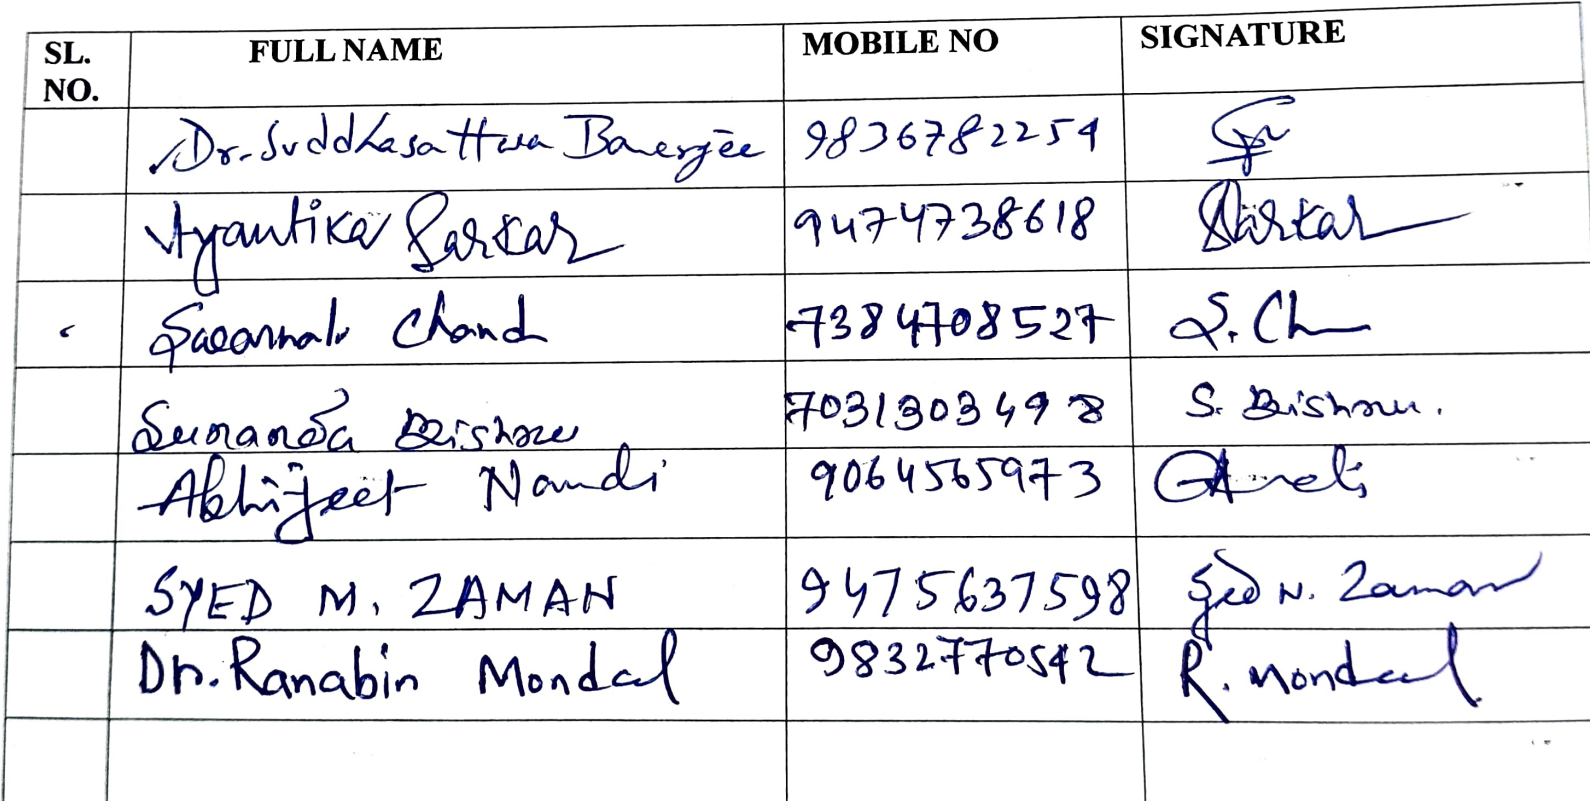 SL. NO. FULL NAME MOBILE NO SIGNATURE
Dr. Suddhasattwa Banerjee 9836782254
Ayantika Sarkar 9474738618 Sarkar
Chand 7384708527 S. Ch
Sunanda Bishnu 7031303498 S. Bishnu.
Abhijeet Nandi 9064565973
SYED M. ZAMAN 9475637598 Syed N. Zaman
Dr. Ranabin Mondal 9832770542 R. Mondal